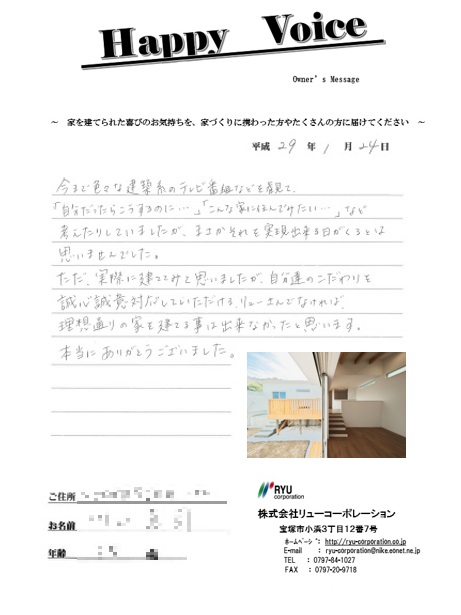 Happy Voice
Owner's Message
～ 家を建てられた喜びのお気持ちを、家づくりに携わった方やたくさんの方に届けてください ～
平成 29 年 1 月 24 日
今まで色々な建築系のテレビ番組などを観て、
「自分だったらこうするのに…」「こんな家に住んでみたい…」など
考えたりしていましたが、まさかそれを実現出来る日がくるとは
思いませんでした。
ただ、実際に建ててみて思いましたが、自分達のこだわりを
誠心誠意対応していただける、リューさんでなければ、
理想通りの家を建てる事は出来なかったと思います。
本当にありがとうございました。
RYU
corporation
株式会社リューコーポレーション
宝塚市小浜3丁目12番7号
ホームページ: http://ryu-corporation.co.jp
E-mail : ryu-corporation@nike.eonet.ne.jp
TEL : 0797-84-1027
FAX : 0797-20-9718
ご住所
お名前
年齢